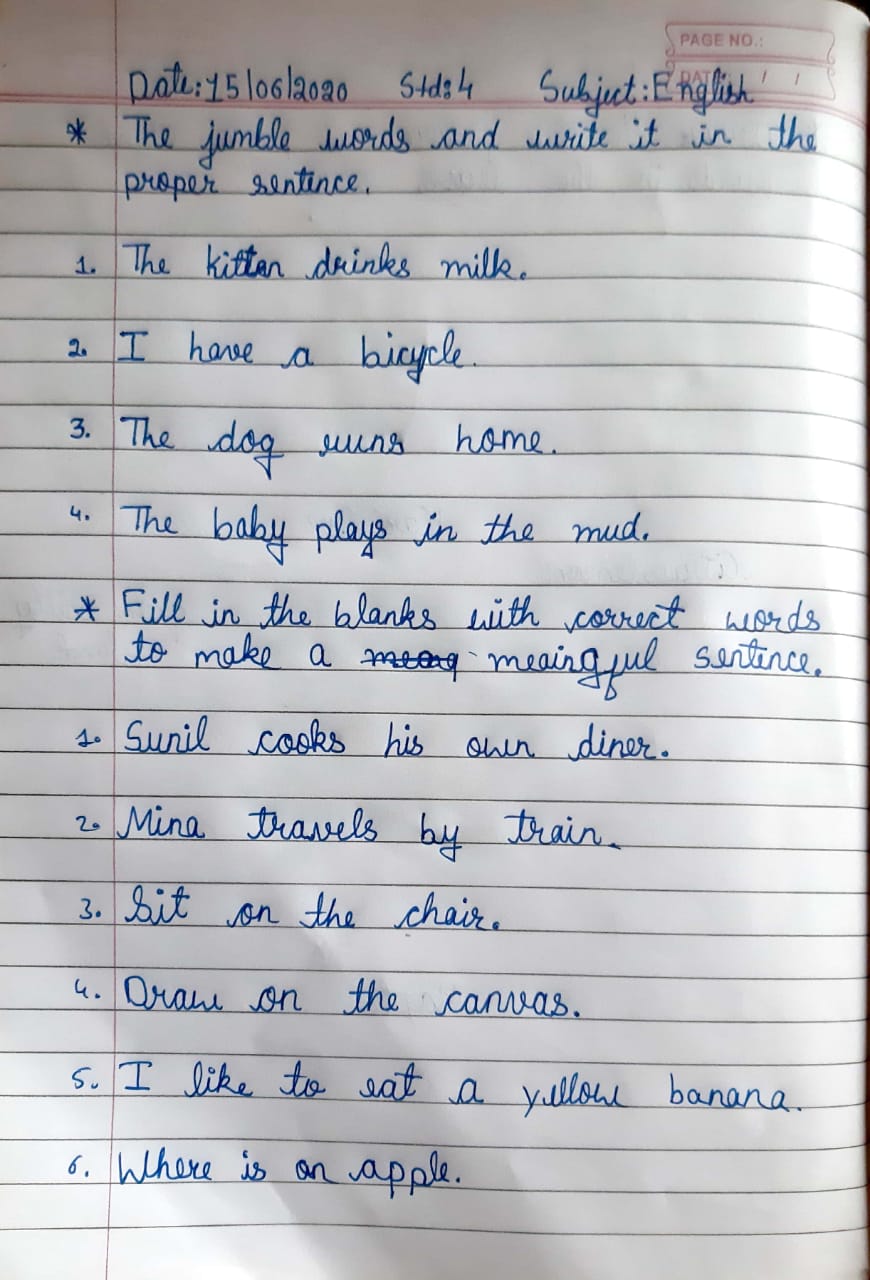 PAGE NO.:
DATE / /
Date: 15/06/2020 Std: 4 Subject: English
* The jumble words and write it in the
proper sentence.
1. The kitten drinks milk.
2. I have a bicycle.
3. The dog runs home.
4. The baby plays in the mud.
* Fill in the blanks with correct words
to make a meaingful sentence.
1. Sunil cooks his own diner.
2. Mina travels by train.
3. Sit on the chair.
4. Draw on the canvas.
5. I like to eat a yellow banana.
6. Where is an apple.